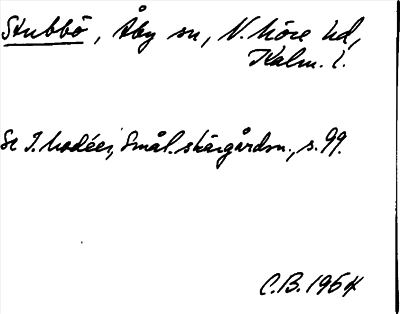 Stubbö, Åby sn, N. Möre hd,
Kalm. l.
Se I. Modéer, Smål. skärgårdsn., s. 99.
C.B. 1964